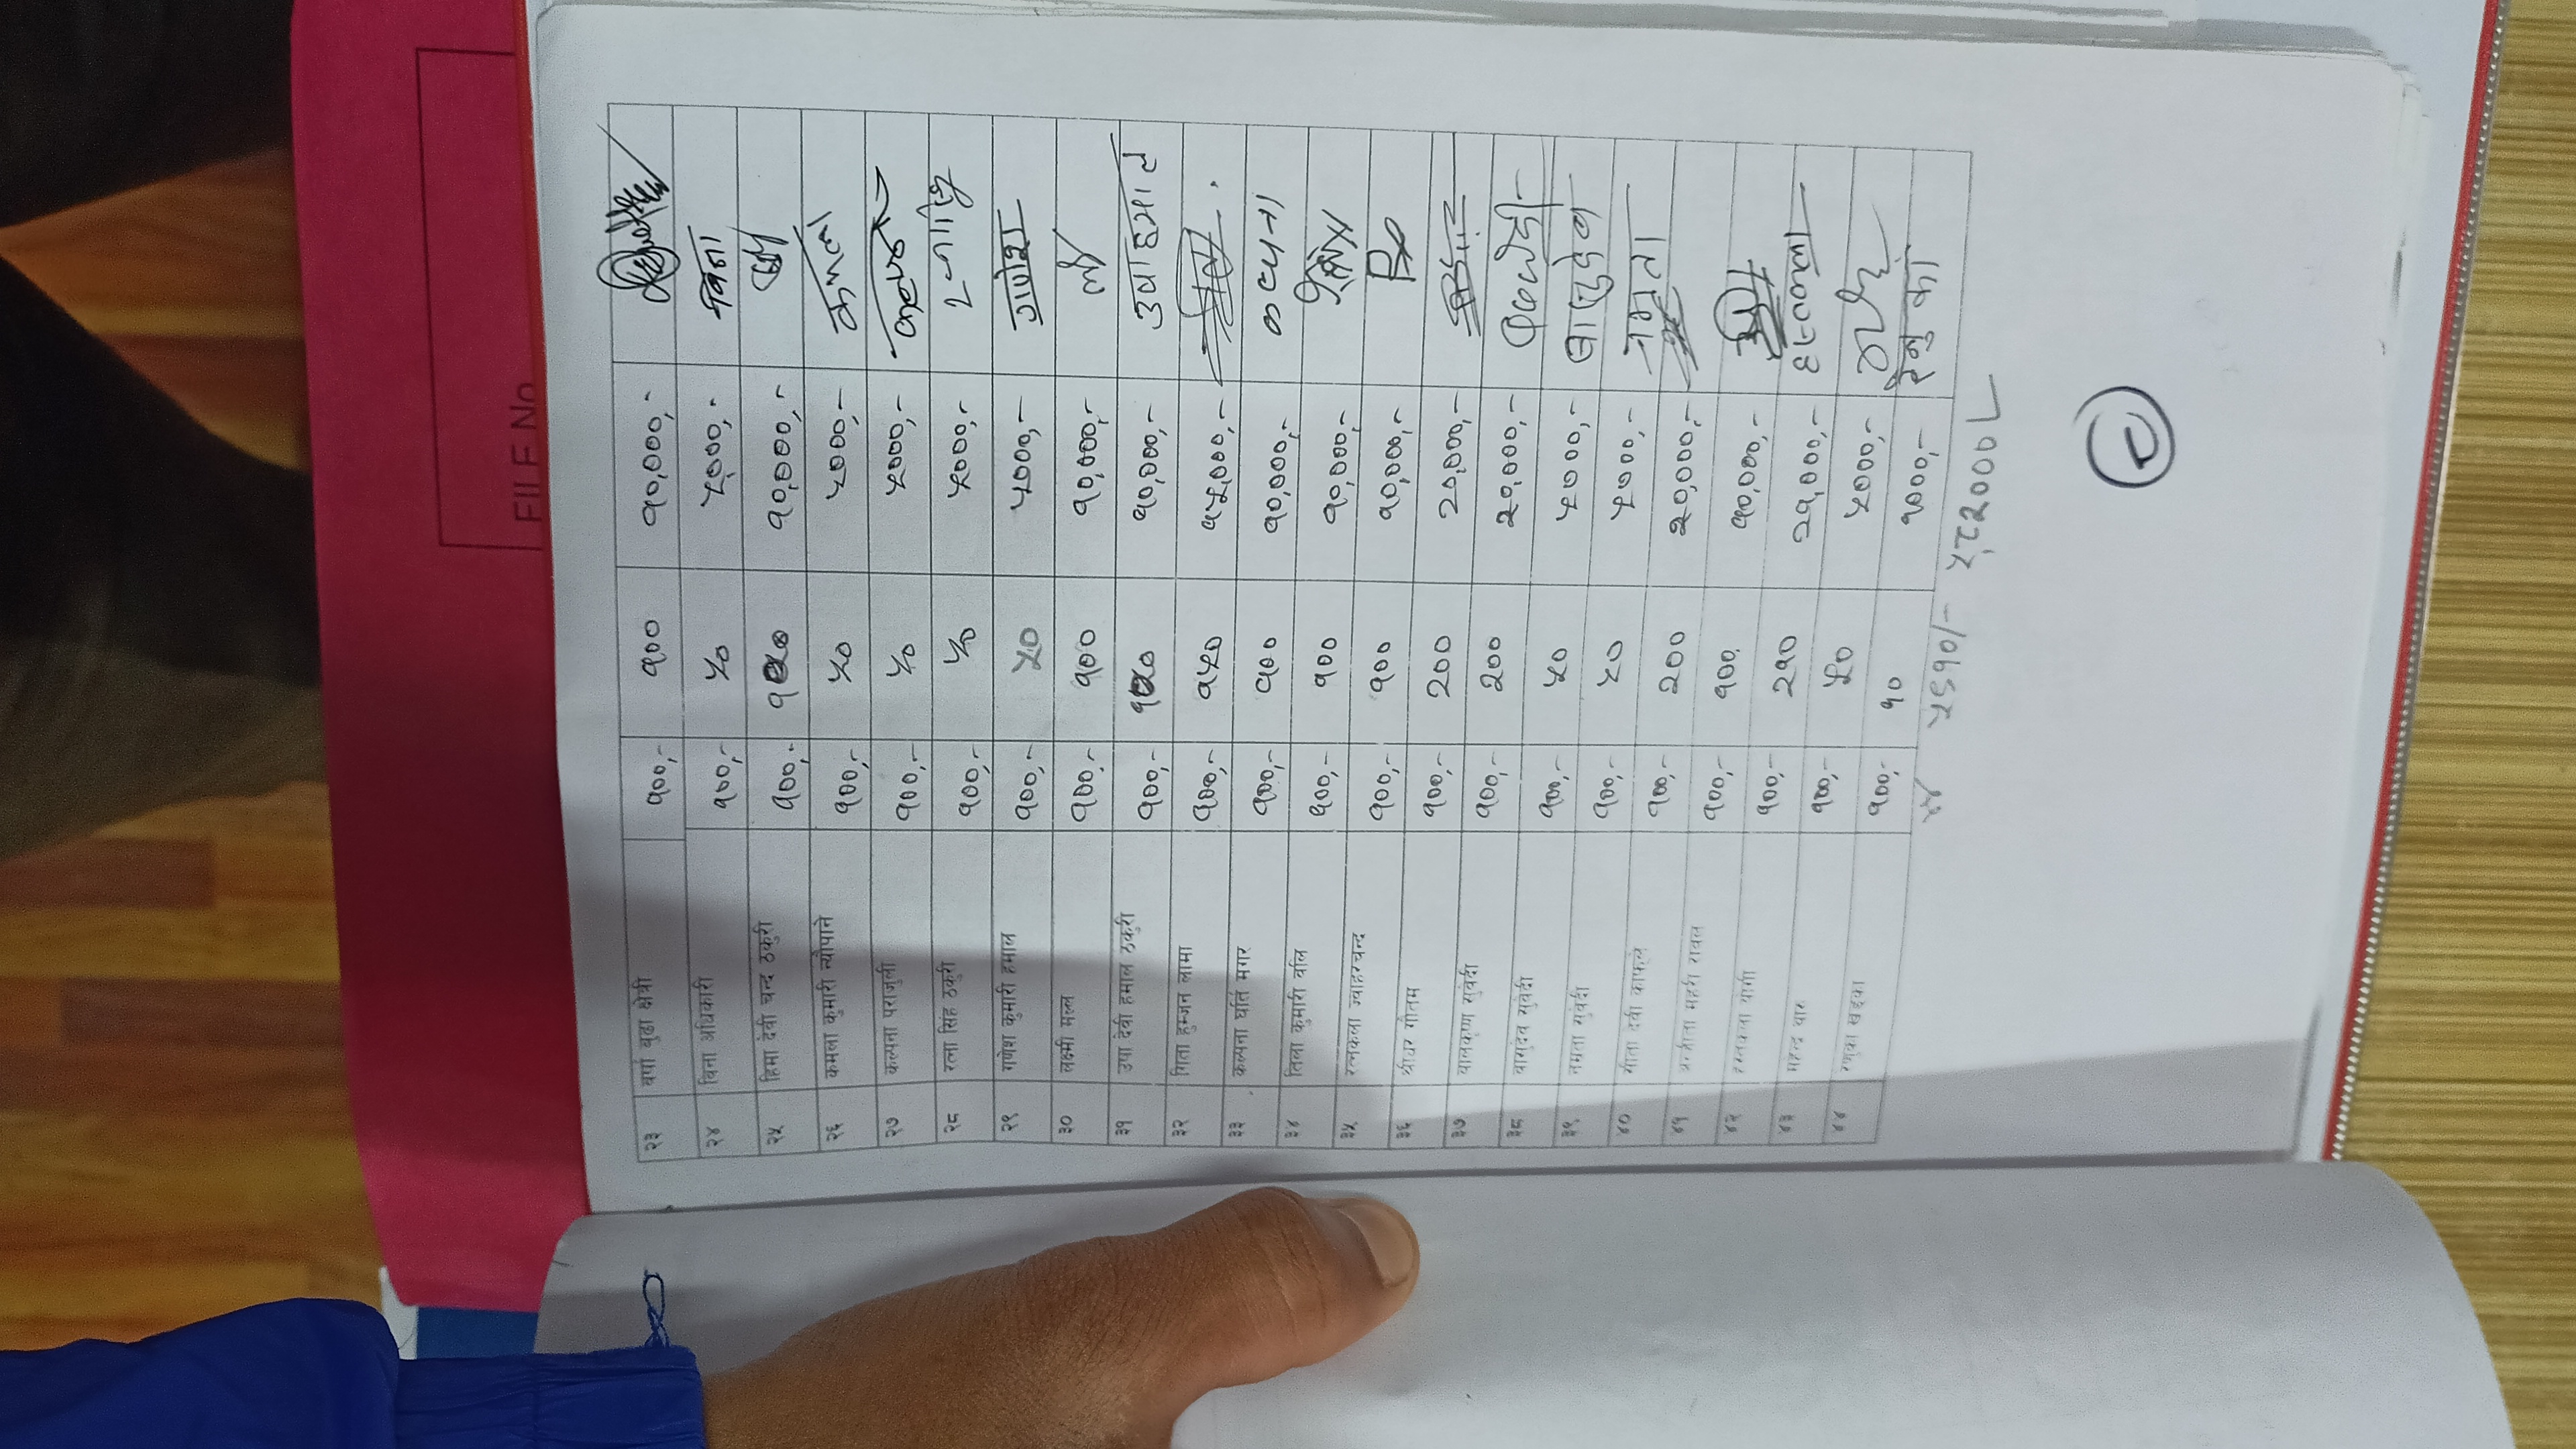 FILE No
२३ वर्षा बुढा क्षेत्री १००,- १०० १०,०००,-
२४ विना अधिकारी १००,- ५० ५०००,- विना
२५ हिमा देवी चन्द ठकुरी १००,- १००० १०,०००,-
२६ कमला कुमारी न्यौपाने १००,- ५० ५०००,- कमला
२७ कल्पना पराजुली १००,- ५० ५०००,- कल्पना
२८ रत्ना सिंह ठकुरी १००,- ५० ५०००,-
२९ गणेश कुमारी हमाल १००,- ५० ५०००,- गणेश
३० लक्ष्मी मल्ल १००,- १०० १०,०००,-
३१ उषा देवी हमाल ठकुरी १००,- १०० १०,०००,- उषा हमाल
३२ गिता हुम्जन लामा १००,- १५० १५,०००,-
३३ कल्पना घर्ति मगर १००,- १०० १०,०००,- कल्पना
३४ तिला कुमारी वलि १००,- १०० १०,०००,-
३५ रत्नकला ज्वाहरचन्द १००,- १०० १०,०००,-
३६ श्रीधर गौतम १००,- २०० २०,०००,-
३७ बालकृष्ण सुवेदी १००,- २०० २०,०००,-
३८ वासुदेव सुवेदी १००,- ५० ५०००,- वासुदेव
३९ नम्रता सुवेदी १००,- ५० ५०००,- नम्रता
४० सीता देवी काफ्ले १००,- २०० २०,०००,-
४१ महरी रावल १००,- १०० १०,०००,-
४२ हस्तकला योगी १००,- २१० २१,०००,- हस्तकला
४३ महेन्द्र १००,- ५० ५०००,-
४४ रेणुका खड्का १००,- १० १०००,- रेनुका
४४ ५६१०/- ५,८२०००/-